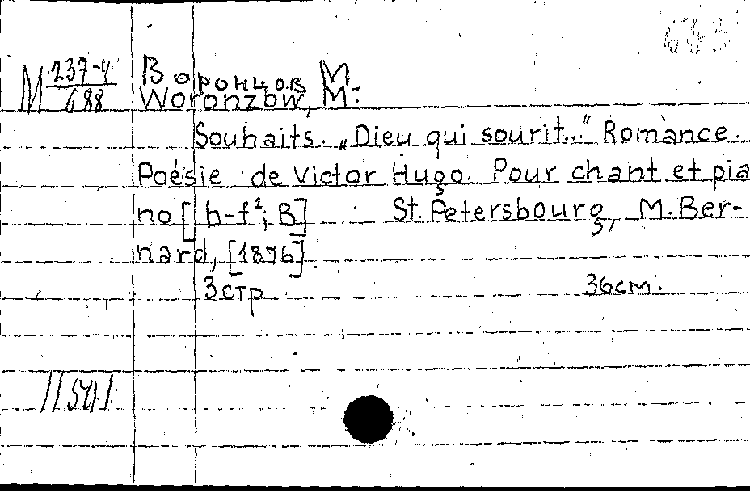 M 237-4/688
Воронцов М.
Woronzow, M.
Souhaits. „Dieu qui sourit..." Romance.
Poésie de Victor Hugo. Pour chant et pia
no [b-f²; B] St. Petersbourg, M. Ber-
nard, [1876].
3 стр 36 см.